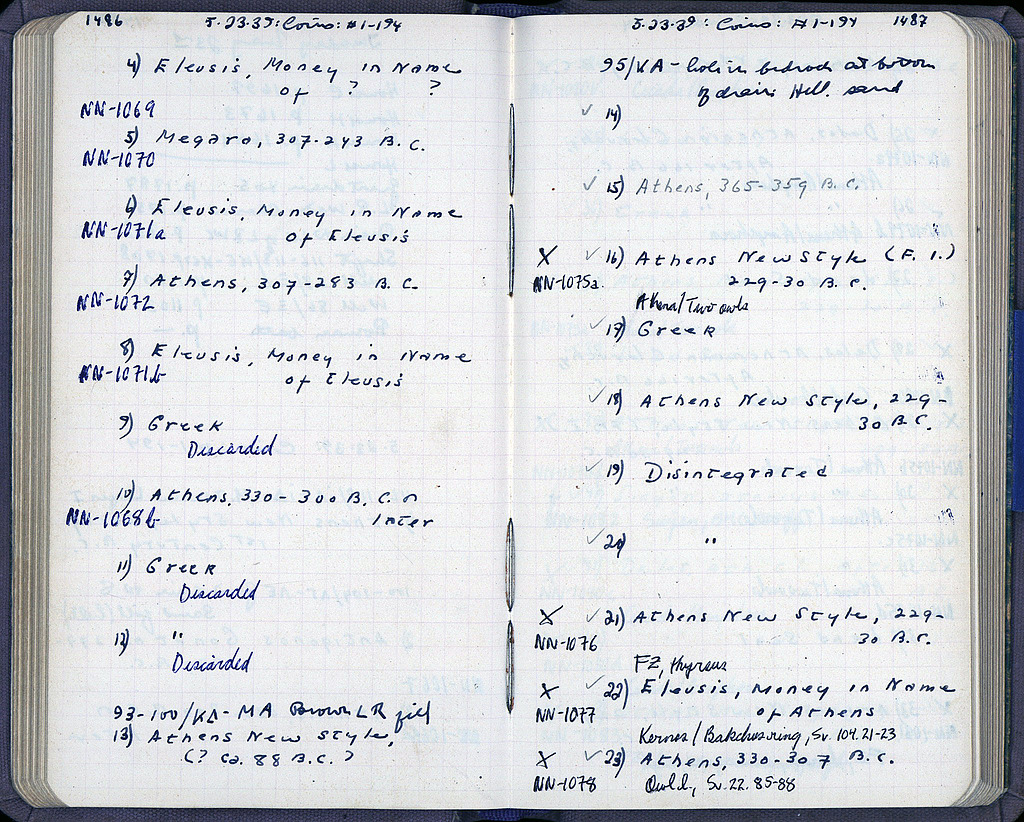 1486 5.23.39: Coins: #1-194
4) Eleusis, Money in Name
of ? ?
NN-1069
5) Megara, 307-243 B.C.
NN-1070
6) Eleusis, Money in Name
NN-1071a of Eleusis
7) Athens, 307-283 B.C.
NN-1072
8) Eleusis, Money in Name
NN-1071b of Eleusis
9) Greek
Discarded
10) Athens, 330-300 B.C. or
NN-1068b later
11) Greek
Discarded
12) "
Discarded
93-100/ΚΔ-ΜΑ Brown LR fill
13) Athens New Style,
(? ca. 88 B.C.?
5.23.39: Coins: #1-194 1487
95/ΚΑ - hole in bedrock at bottom
of drain Hell. sand
✓ 14)
✓ 15) Athens, 365-359 B.C.
X ✓ 16) Athens New Style (F. 1.)
NN-1075a 229-30 B.C.
Athena/Two owls
✓ 17) Greek
✓ 18) Athens New Style, 229-
30 B.C.
✓ 19) Disintegrated
✓ 20) "
X ✓ 21) Athens New Style, 229-
NN-1076 30 B.C.
FZ, thyrsus
X ✓ 22) Eleusis, Money in Name
NN-1077 of Athens
Kernos/Bakchos ring, Sv. 104.21-23
X ✓ 23) Athens, 330-307 B.C.
NN-1078 Owl l., Sv. 22. 85-88